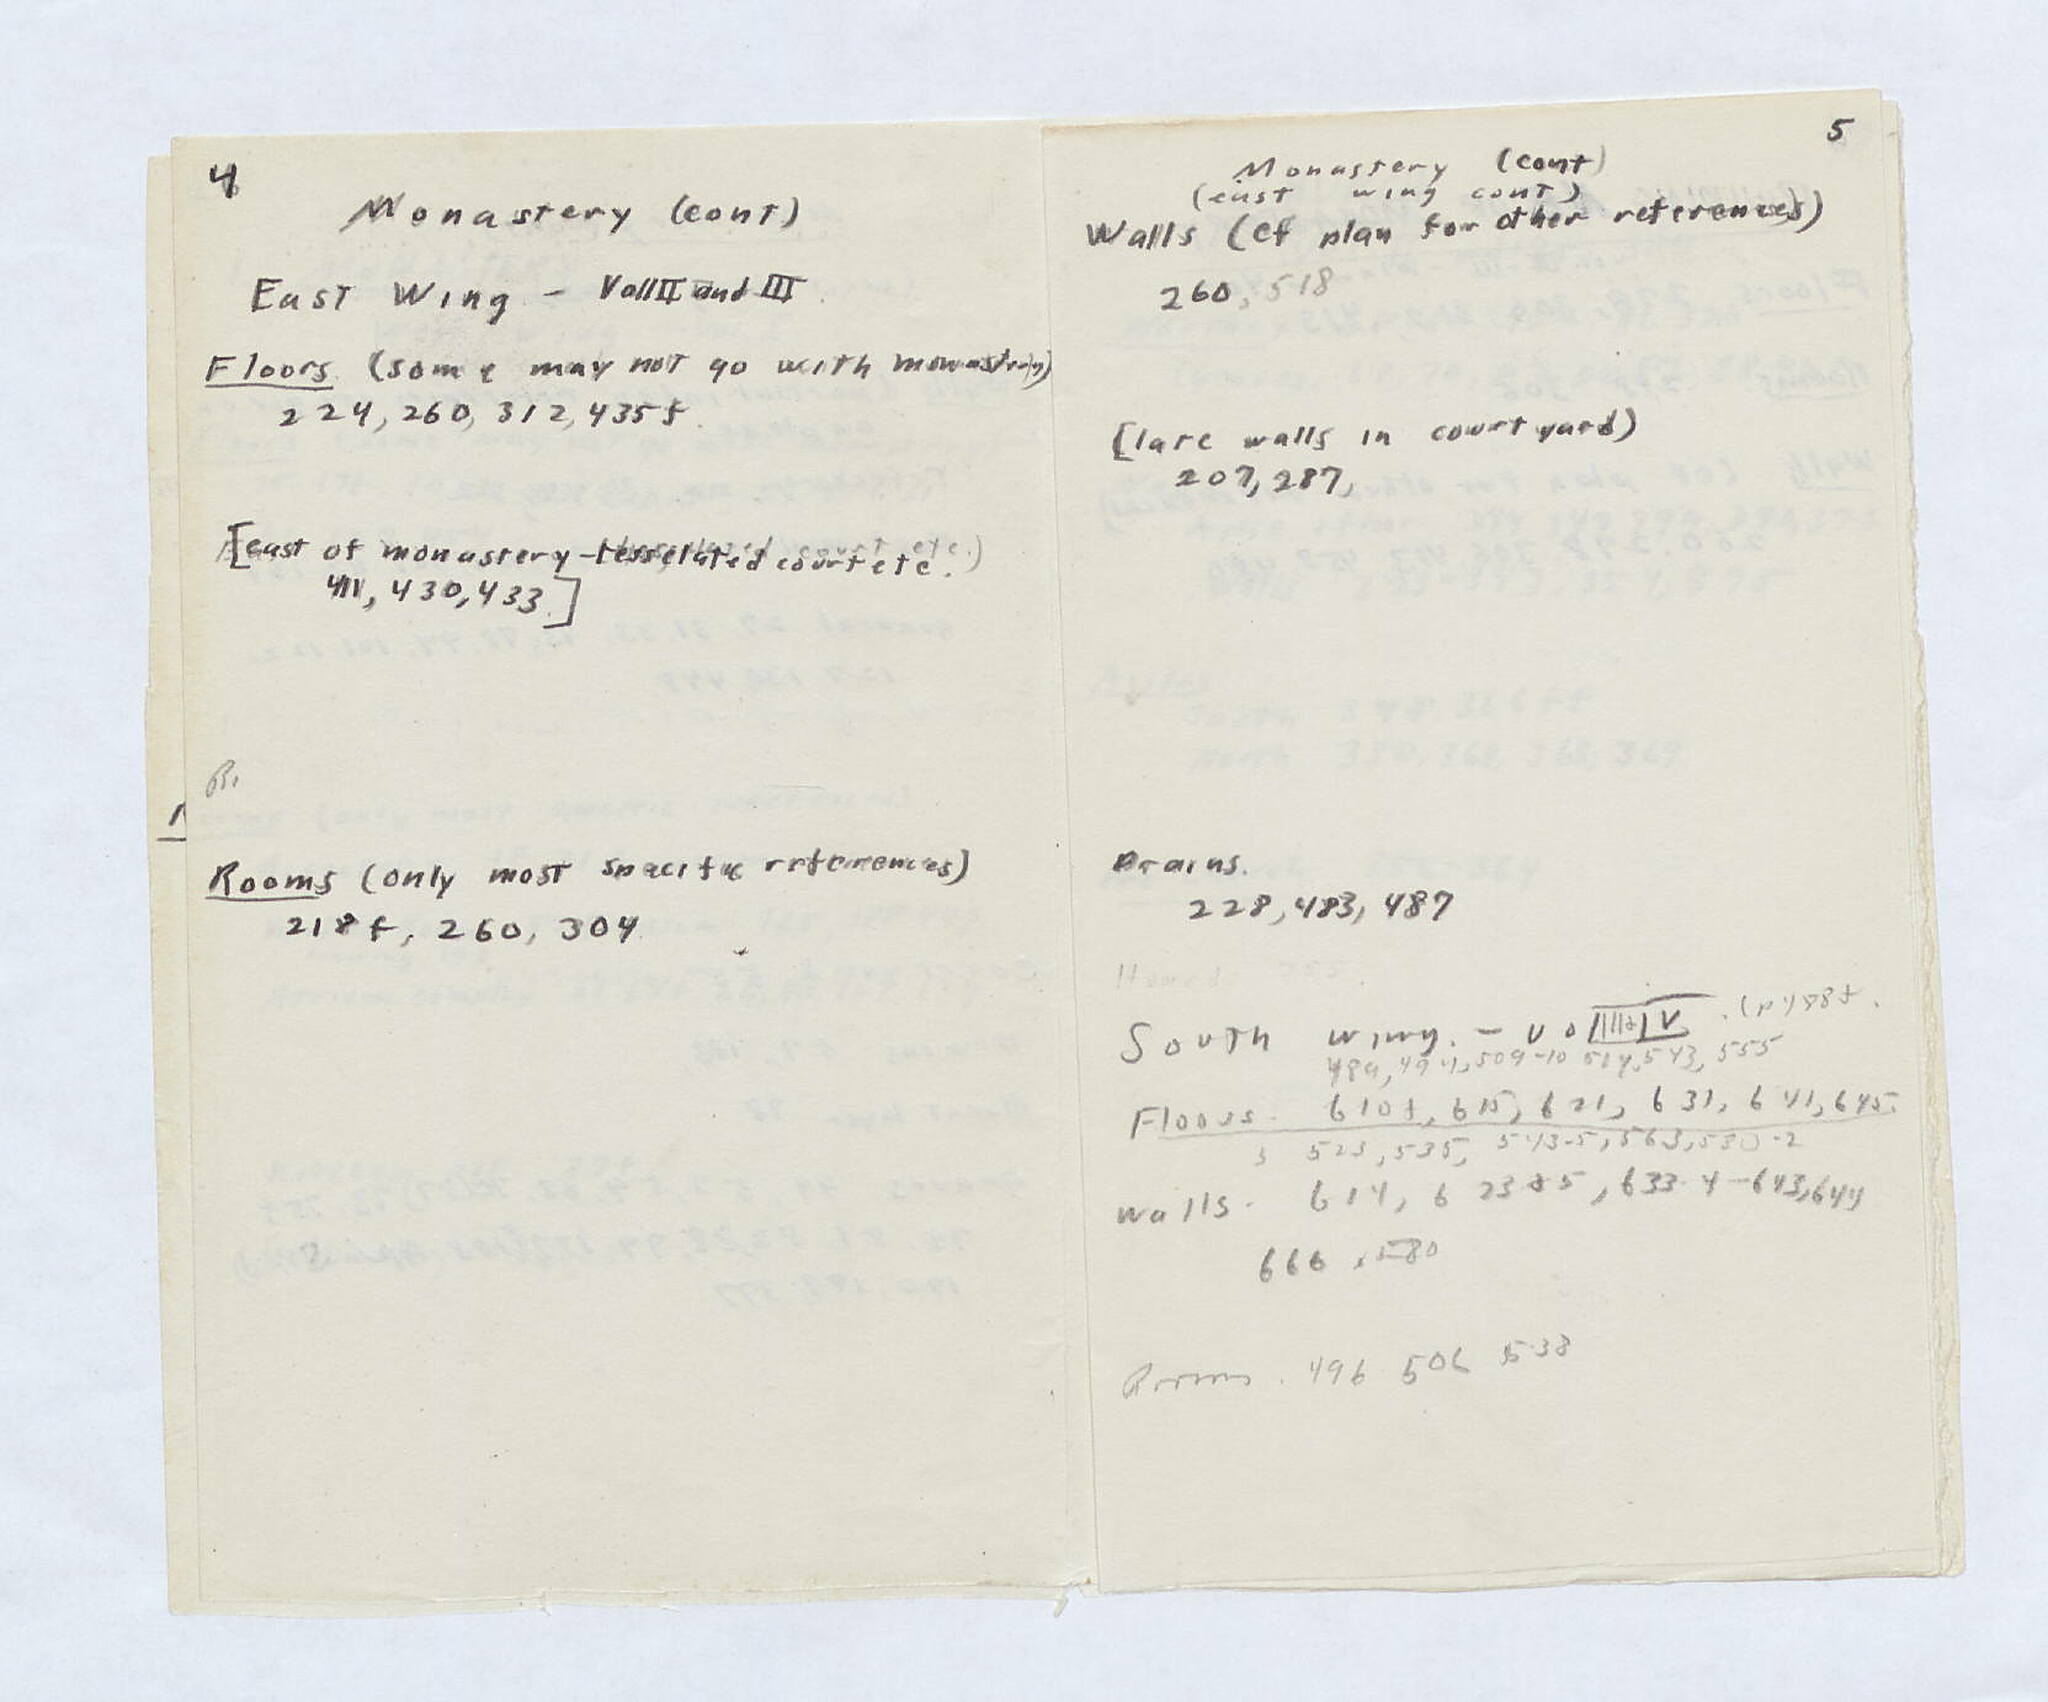 4
Monastery (cont)
East Wing - Vol II and III.
Floors (some may not go with monastery)
224, 260, 312, 435f.
[east of monastery - tesselated court etc.
411, 430, 433.]
Rooms (only most specific references)
218f, 260, 304
5
Monastery (cont)
(east wing cont)
Walls (cf plan for other references)
260, 518
[late walls in courtyard)
207, 287,
Drains.
228, 483, 487
South wing. - Vol
489, 494, 509-10 514, 543, 555
Floors. 610f, 615, 621, 631, 641, 645.
523, 535, 543-5, 563, 580-2
Walls. 614, 623+5, 633-4-643, 644
666, 580
Rooms. 496 506 538